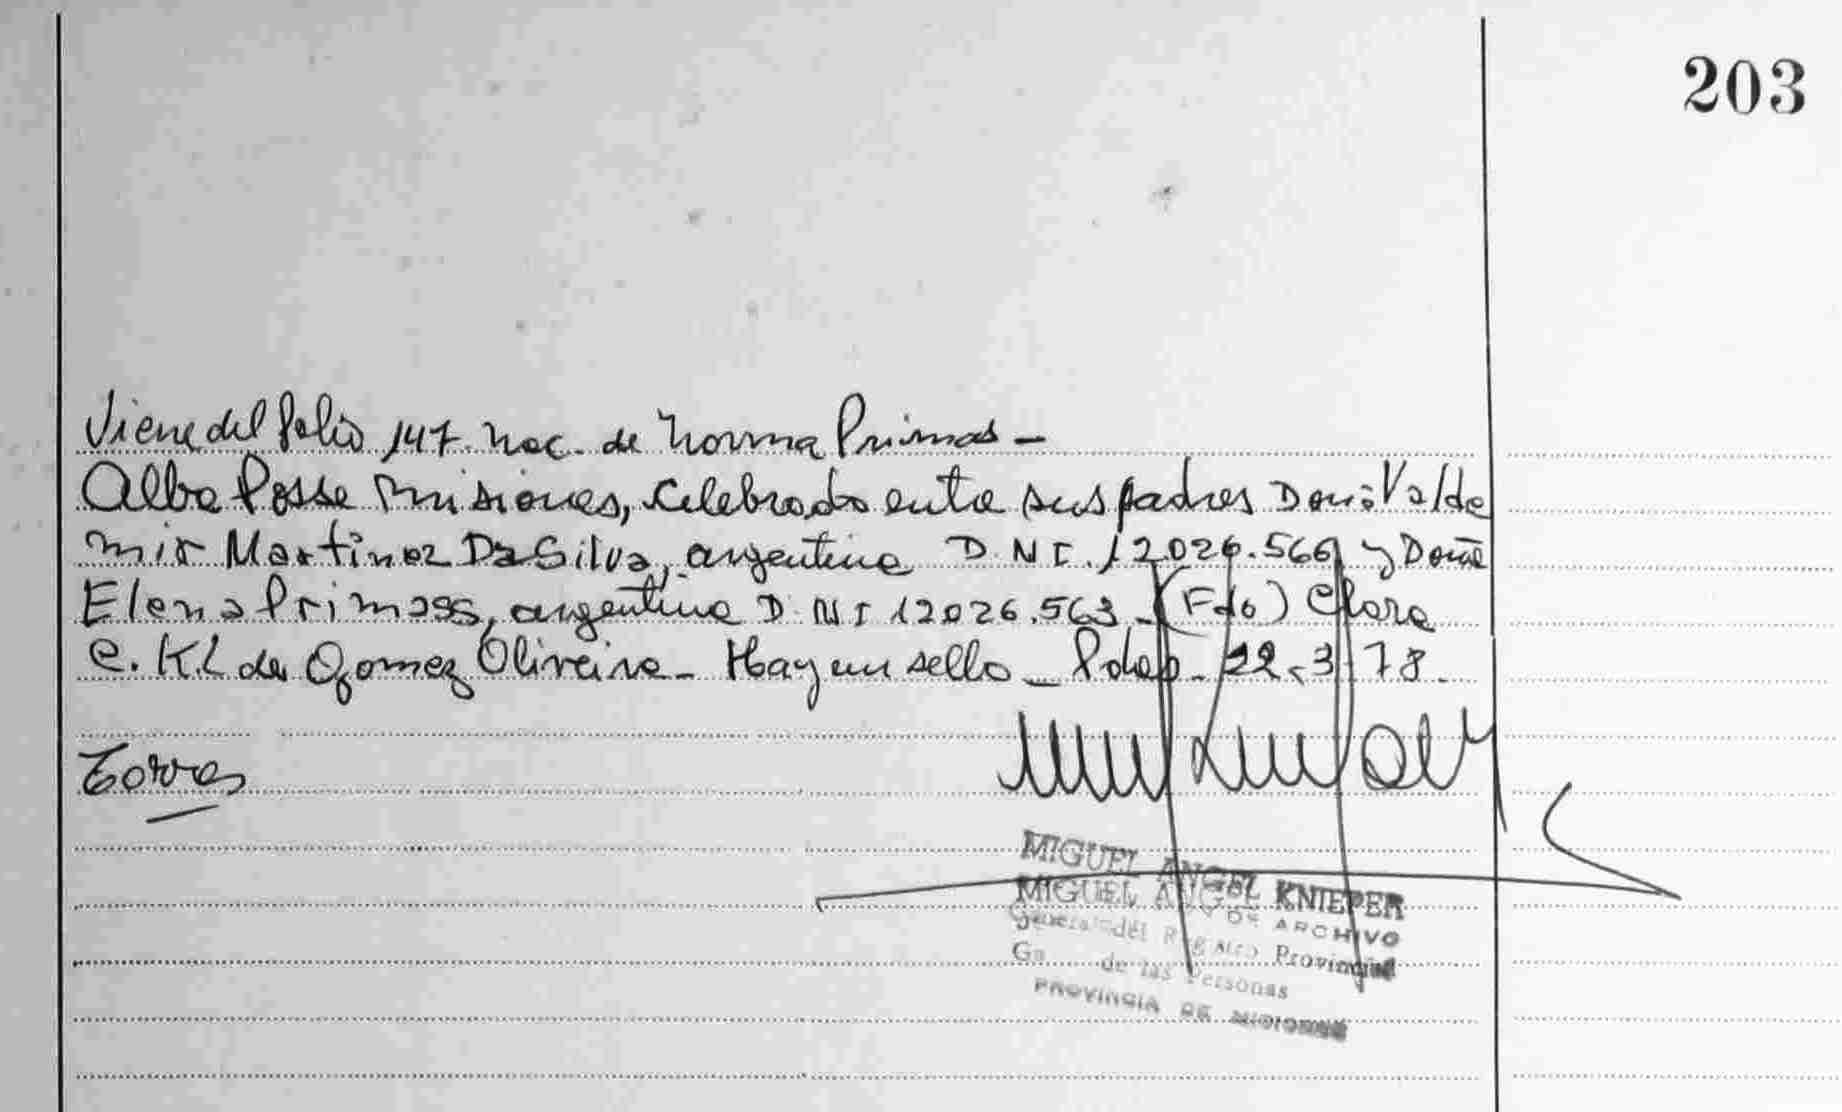 203
Viene del folio 147. Nac. de Norma Primas -
Alba Posse Misiones, celebrado entre sus padres Don: Valde
mir Martinez Da Silva, argentino D.N.I. 12026.566 y Doña
Elena Primass, argentina D.N.I 12026.563 - (Fdo) Clara
C. K.L de Gomez Oliveira - Hay un sello - Pdas. 22-3-78.
Torres
MIGUEL ANGEL
MIGUEL ANGEL KNIEPER
DE ARCHIVO
General del Registro Provincial
de las Personas
PROVINCIA DE MISIONES